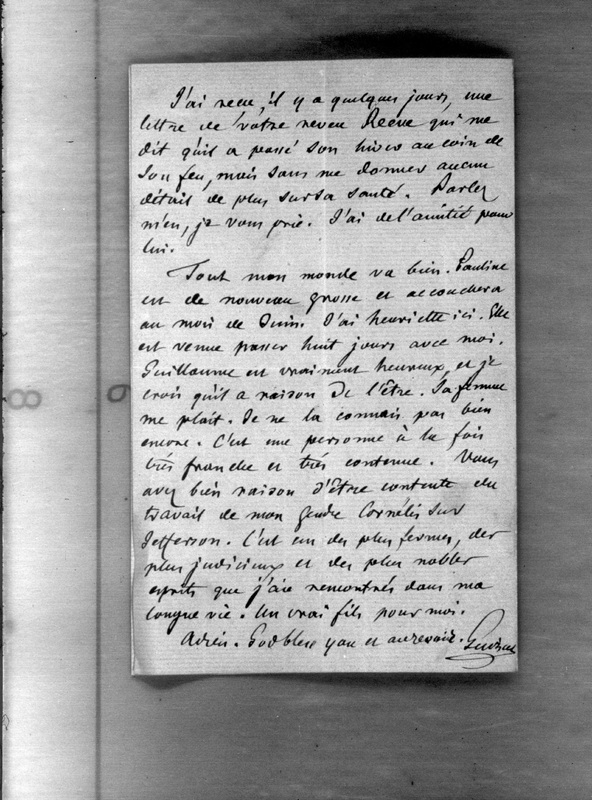 J'ai reçu, il y a quelques jours, une
lettre de votre neveu Reeve qui me
dit qu'il a passé son hiver au coin de
son feu, mais sans me donner aucun
détail de plus sur sa santé. Parlez
m'en, je vous prie. J'ai de l'amitié pour
lui.
Tout mon monde va bien. Pauline
est de nouveau grosse et accouchera
au mois de Juin. J'ai henriette ici. Elle
est venue passer huit jours avec moi.
Guillaume est vraiment heureux, et je
crois qu'il a raison de l'être. Sa femme
me plait. Je ne la connais pas bien
encore. C'est une personne à la fois
très franche et très contenue. Vous
avez bien raison d'être contente du
travail de mon gendre Cornélis sur
Jefferson. C'est un des plus fermes, des
plus judicieux et des plus nobles
esprits que j'aie rencontrés dans ma
longue vie. Un vrai fils pour moi.
Adieu. God bless you et au revoir. Guizot
8 9